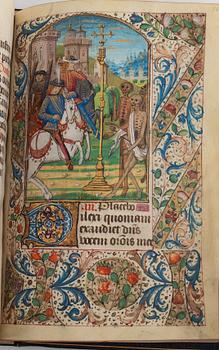 an. Placebo
ilexi quoniam
exaudiet dñs
vocem orõis mee